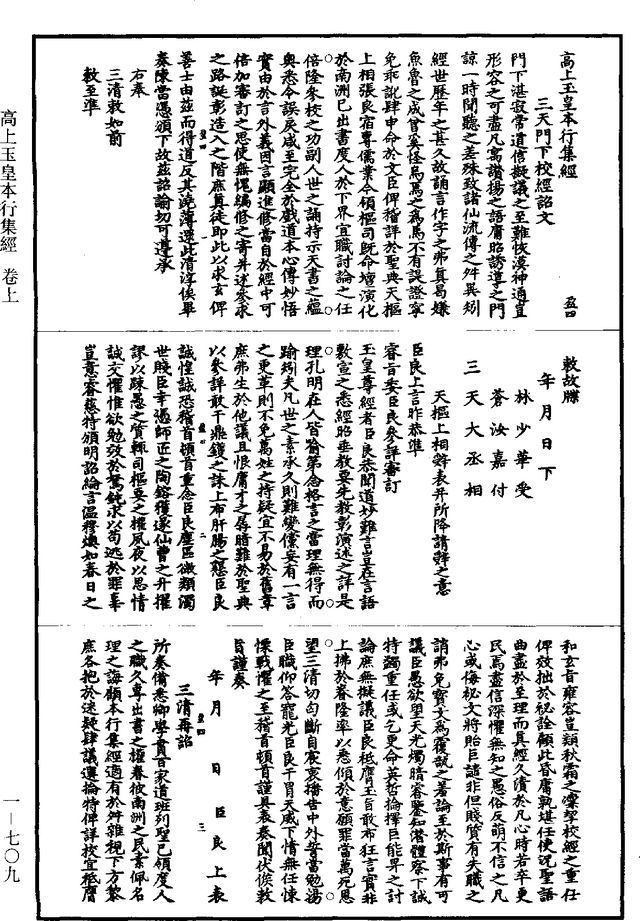 高上玉皇本行集經 盈四
三天門下校經詔文
門下湛寂常道信擬議之至難恢漠神通豈
形容之可盡凡寓讚揚之語庸昭誘導之門
諒一時聞聽之差殊致諸仙流傳之舛異矧
經世歷年之甚久故誦言作字之弗真曷嫌
魚魯之成曾奚怪烏焉之為馬不有諟證寧
免乖訛肆申命於文臣俾稽詳於聖典天樞
上相張良宿專儒業今領樞司既命壇演化
於南洲已出書度人於下界宜職討論之任
倍隆參校之功副人世之誦持示天書之蘊
奧悉令誤戾咸至完全於戲道本心傳妙悟
實由於言外義因言顯進修當自於經中可
倍加審訂之思使無愧編修之寄并述參求
之路誕彰造入之階庶真徒即此以求玄俾
善士由茲而得道反其澆薄還此清淳俟畢
奏陳當憑頒下故茲詔諭切可遵承
右奉
三清敕如前
敕至準
敕故牒
年 月 日 下
林 少 華 受
蒼 汝 嘉 付
三 天 大 丞 相
天樞上相辭表并所降請辭之意
臣良上言昨恭準
睿旨委臣良參詳審訂
玉皇尊經者臣良恭聞道妙難言豈在言語
敷宣之悉經昭垂教要先教彰演述之詳是
理孔明在人皆喻第念格言之當理無得而
踰矧夫凡世之素承久則難變儻妄有一言
之更革則不免萬姓之持疑宜不易於舊章
庶弗生於他議且恨庸才之孱暗難於聖典
以參詳敢干鼎鑊之誅上布肝腸之懇臣良
誠惶誠恐稽首頓首重念臣良塵區微類濁
世賤臣幸憑師匠之陶鎔獲遂仙曹之升擢
謬以疎愚之質輒司樞要之權夙夜以思情
誠交懼惟欲勉效於駑鈍求以苟逃於罪辜
豈意睿慈特頒明詔綸言溫穆燠如春日之
和玄音雍容豈類秋霜之凜挈校經之重任
俾效拙於祕詮顧此昏庸孰堪任使況聖語
曲盡於至理而真經久漬於凡心時若卒更
民焉盡信深懼無知之愚俗反萌不信之凡
心或侮祕文將貽巨譴非但賤質有失職之
誚弗免寶文為覆瓿之差論至於斯事有可
議臣愚欲望天光燭暗睿鑒知微體察下誠
特蠲重任或乞更命英哲掄擇巨能畀之討
論庶無擬議臣良祗膺玉旨敢布狂言實非
上拂於眷隆率以悉傾於意願罪當萬死恩
望三清切勾斷自宸衷播告中外誓當勉揚
臣職仰答寵光臣良干冒天威下情無任悚
慄戰懼之至稽首頓首謹具表奏聞伏候敕
旨謹奏
年 月 日 臣 良 上 表
三清再詔
所奏備悉卿學貫百家道班列聖已領度人
之職久專出書之權眷彼南洲之民素佩名
理之誨顧本行集經適有於舛雜視下方黎
庶各抱於迷疑肆議選掄特俾詳校宜祗膺
高上玉皇本行集經 卷上
一—七〇九